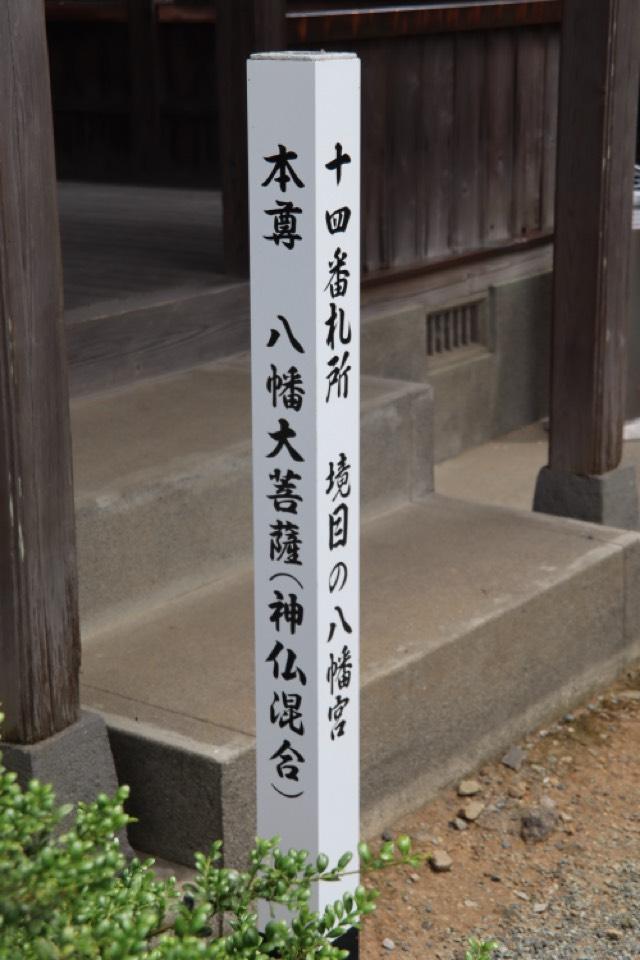 十四番札所　境目の八幡宮
本尊　八幡大菩薩（神仏混合）